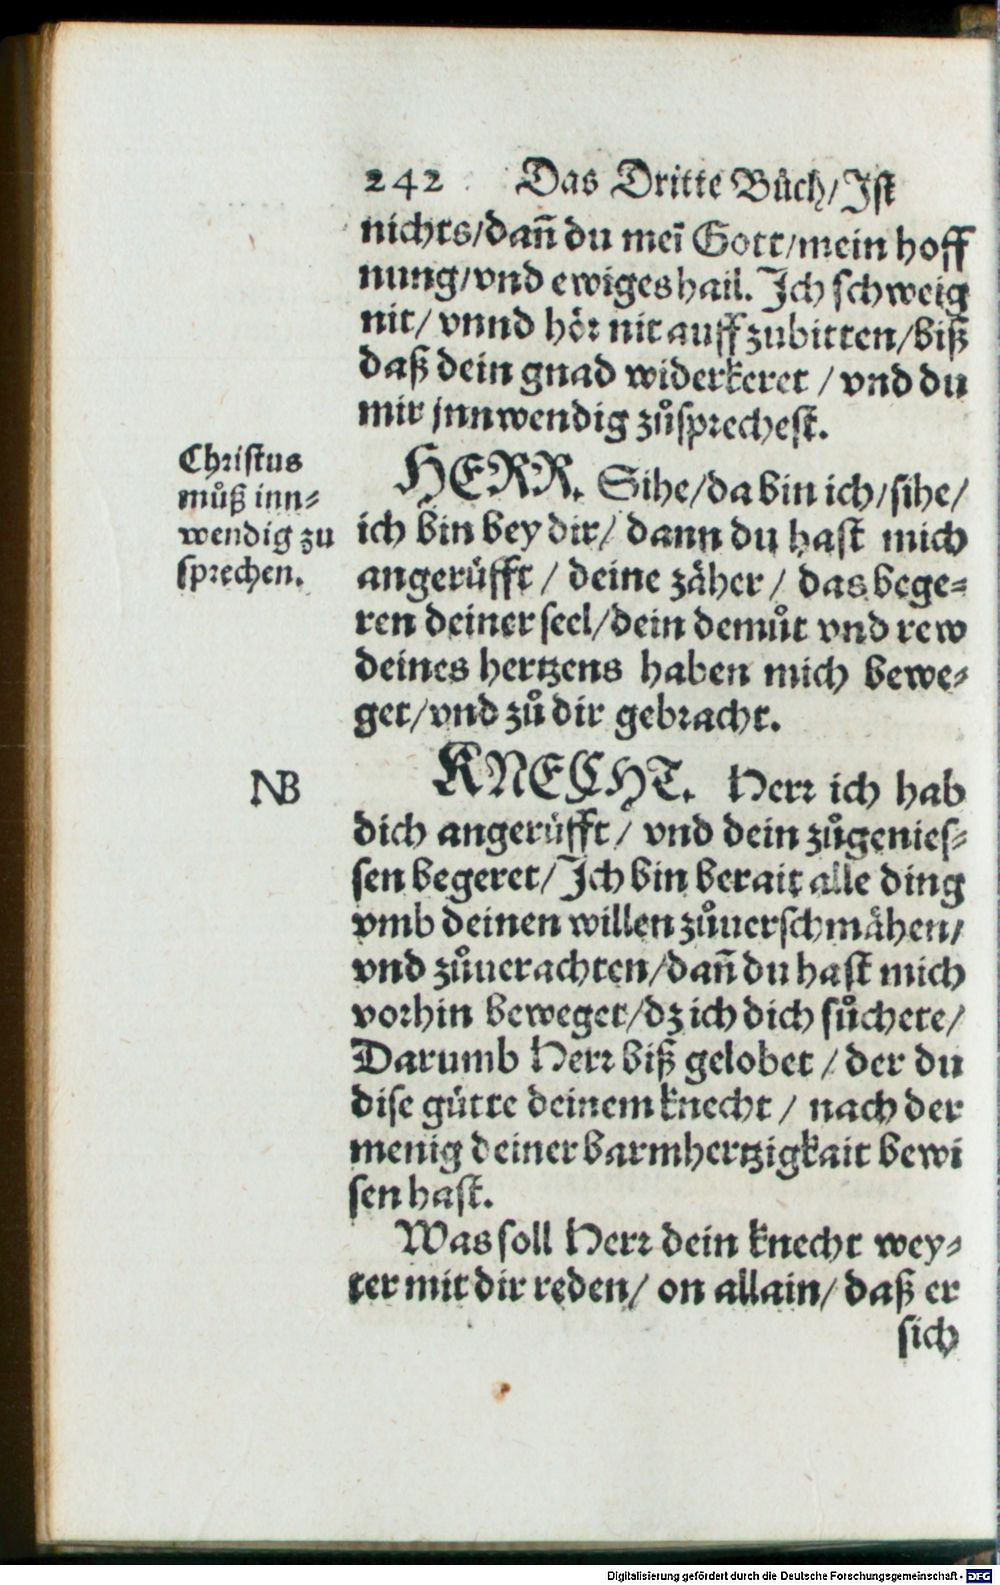 242 Das Dritte Bůch/ Ist
nichts/ dañ du meĩ Gott/ mein hoff
nung/ vnd ewiges hail. Ich schweig
nit/ vnnd hör nit auff zubitten/ biß
daß dein gnad widerkeret / vnd du
mir jnnwendig zůsprechest.
Christus
můß inn-
wendig zu
sprechen.
HERR. Sihe/ da bin ich/ sihe/
ich bin bey dir/ dann du hast mich
angerüfft / deine zäher / das bege-
ren deiner seel/ dein demůt vnd rew
deines hertzens haben mich bewe-
get/ vnd zů dir gebracht.
NB
KNECHT. Herr ich hab
dich angerüfft / vnd dein zůgenies-
sen begeret/ Ich bin berait alle ding
vmb deinen willen zůuerschmähen/
vnd zůuerachten/ dañ du hast mich
vorhin beweget/ dz ich dich sůchete/
Darumb Herr biß gelobet / der du
dise gütte deinem knecht / nach der
menig deiner barmhertzigkait bewi
sen hast.
Was soll Herr dein knecht wey-
ter mit dir reden/ on allain/ daß er
sich
Digitalisierung gefördert durch die Deutsche Forschungsgemeinschaft - DFG